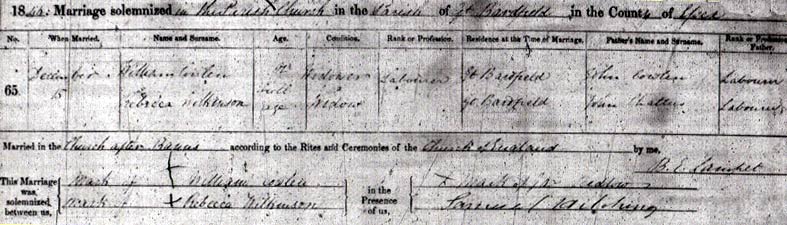 18 Marriage solemnized in the Parish Church in the Parish of Gt. Bardfield in the County of Essex
No. When Married. Name and Surname. Age. Condition. Rank or Profession. Residence at the Time of Marriage. Father's Name and Surname. Rank or Profession of Father.
65 December 15 William Cowlen Of full age Widower Labourer Gt Bardfield John Cowlen Labourer
Rebecca Wilkinson Widow Gt Bardfield John Labourer
Married in the Church after Banns according to the Rites and Ceremonies of the Church of England by me,
B. E. Lampet
This Marriage was solemnized between us, mark of X William Cowlen in the Presence of us, X Mark of
mark of X Rebecca Wilkinson Samuel